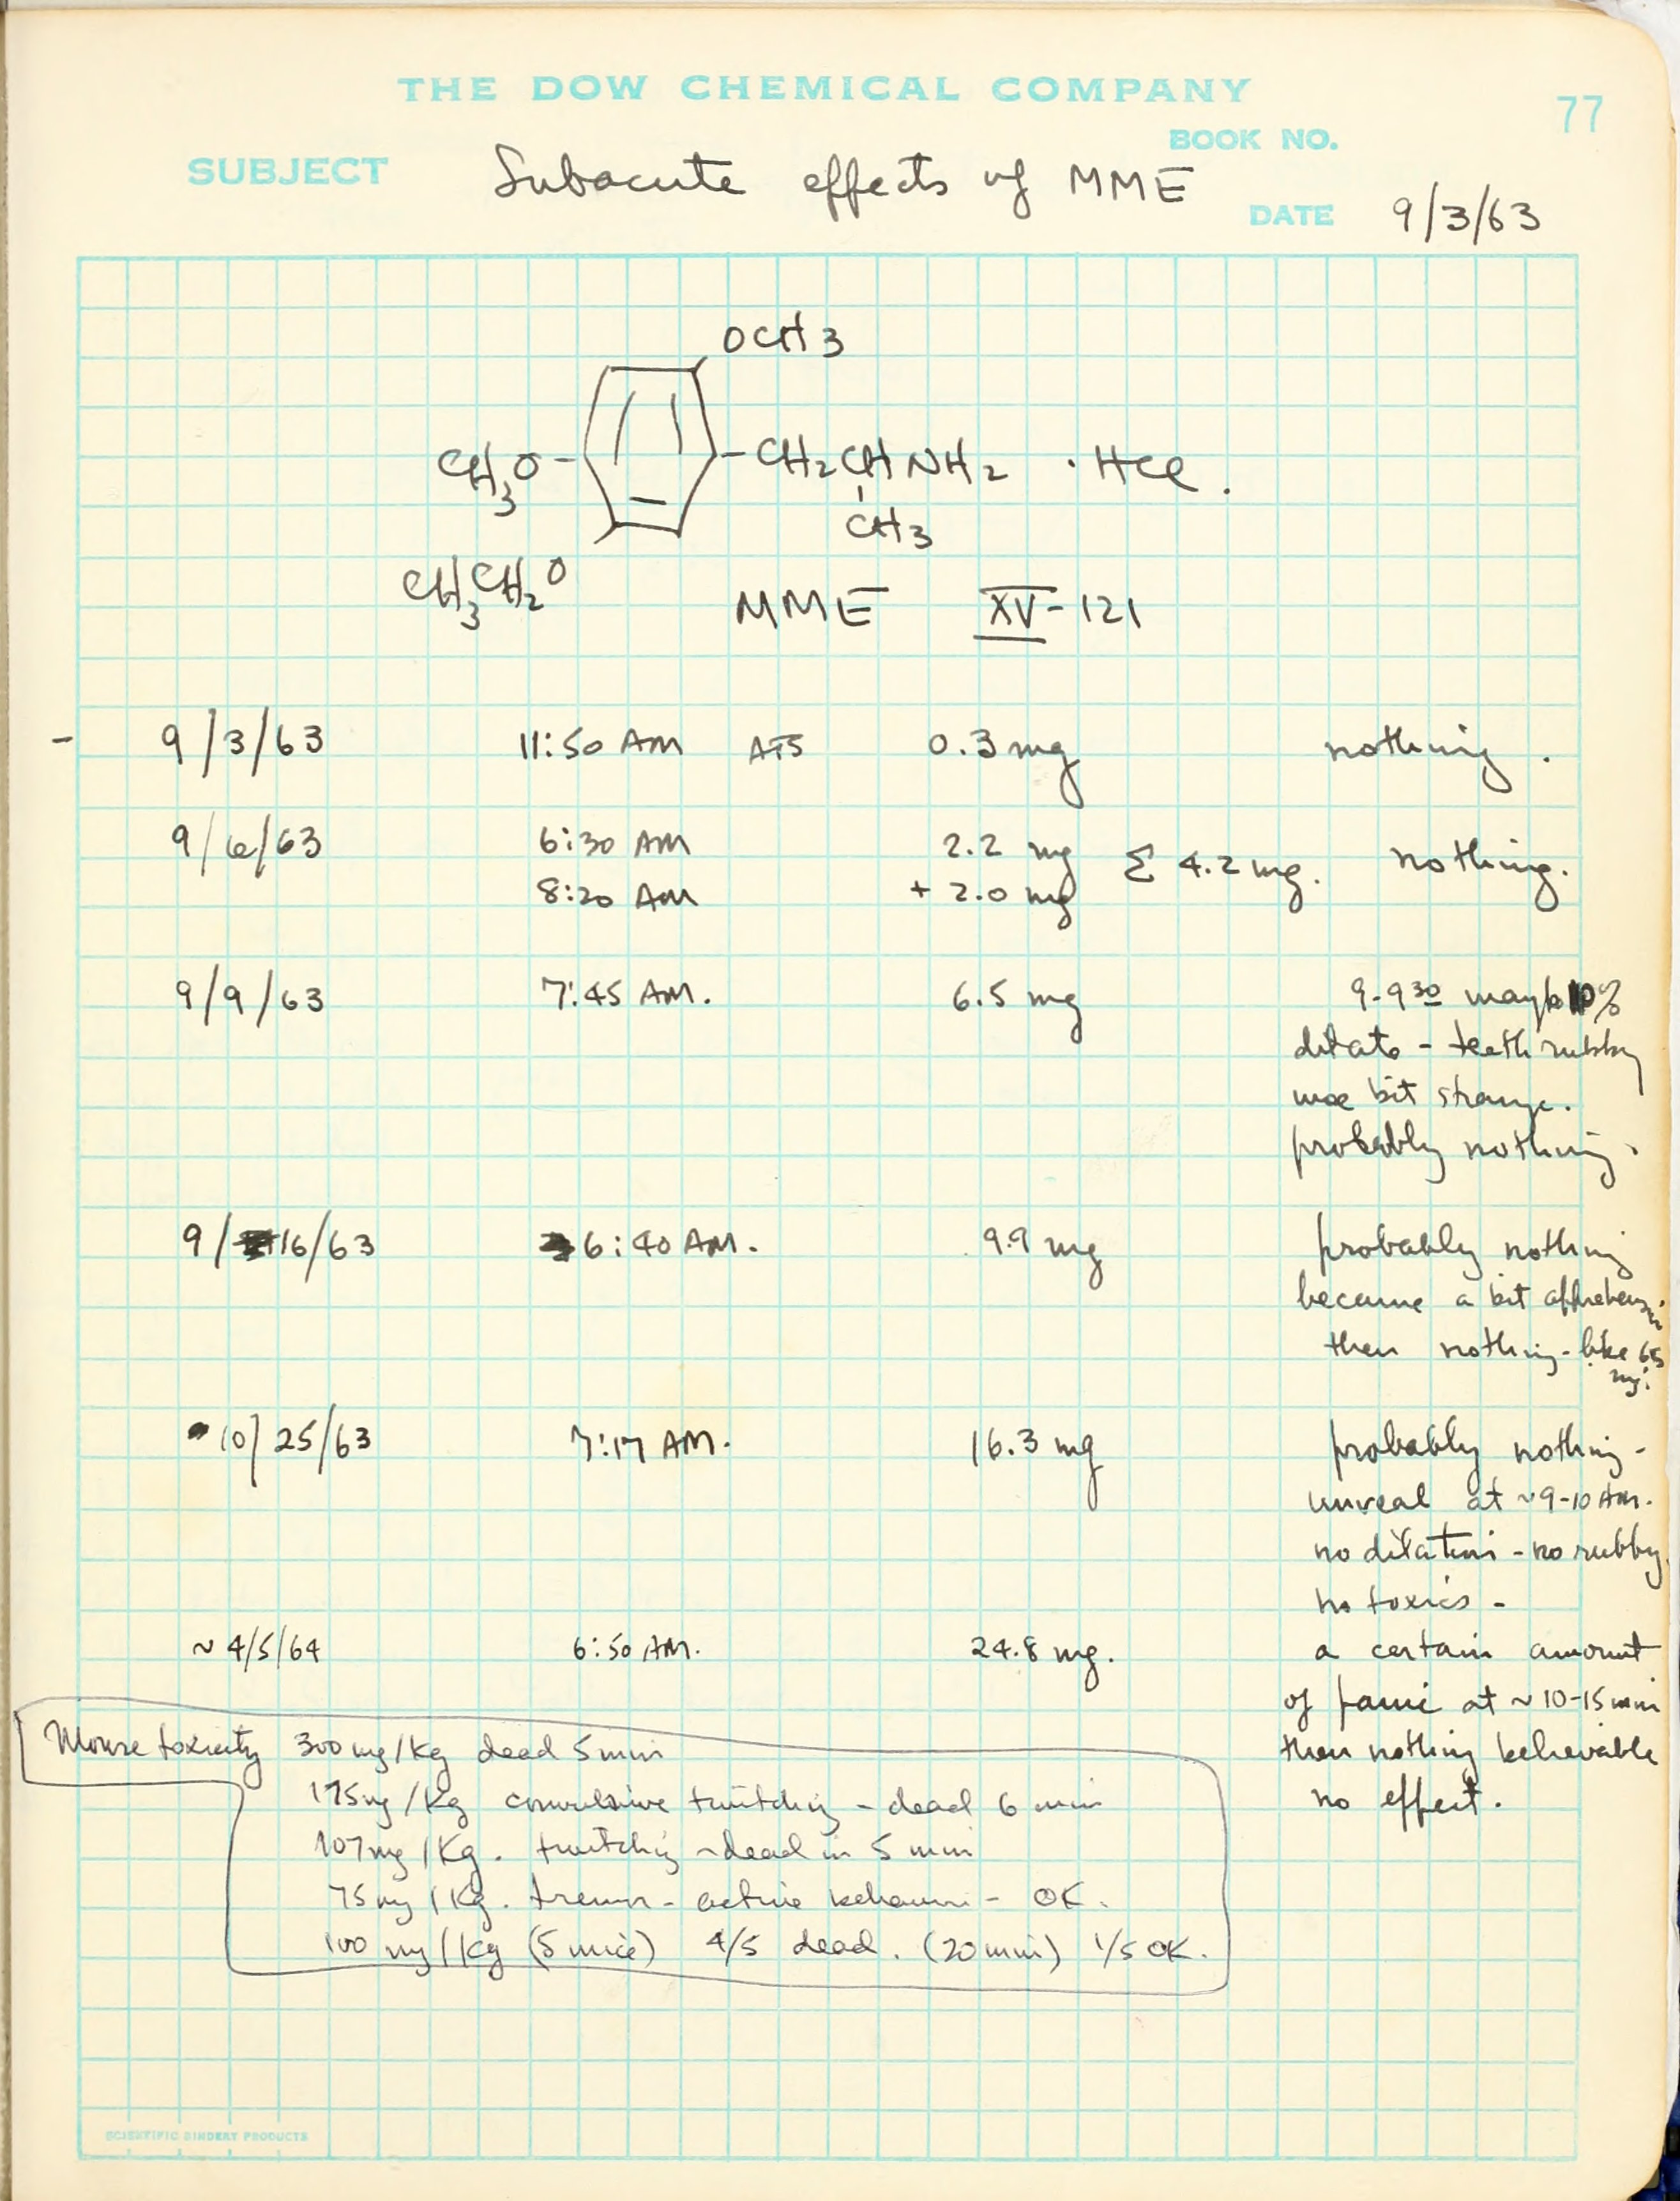 THE DOW CHEMICAL COMPANY
77
BOOK NO.
SUBJECT Subacute effects of MME
DATE 9/3/63
OCH3
CH3O- -CH2CHNH2 ·HCl.
CH3
CH3CH2O
MME XV-121
- 9/3/63 11:50 AM ATS 0.3 mg nothing.
9/6/63 6:30 AM 2.2 mg Σ 4.2 mg. nothing.
8:20 AM + 2.0 mg
9/9/63 7:45 AM. 6.5 mg 9-9 30 maybe 10%
dilate - teeth rubby
wee bit strange.
probably nothing.
9/16/63 6:40 AM. 9.9 mg probably nothing
became a bit apprehensive
then nothing - like 6.5
mg.
10/25/63 7:17 AM. 16.3 mg probably nothing -
unreal at ~9-10 AM.
no dilation - no rubby
no toxics -
~ 4/5/64 6:50 AM. 24.8 mg. a certain amount
of panic at ~ 10-15 min
then nothing believable
no effect.
Mouse toxicity 300 mg/Kg dead 5 min
175 mg/Kg convulsive twitching - dead 6 min
107 mg/Kg. twitching ~ dead in 5 min
75 mg/Kg. tremor - active behavior - OK.
100 mg/Kg (5 mice) 4/5 dead. (20 min) 1/5 OK.
SCIENTIFIC BINDERY PRODUCTS